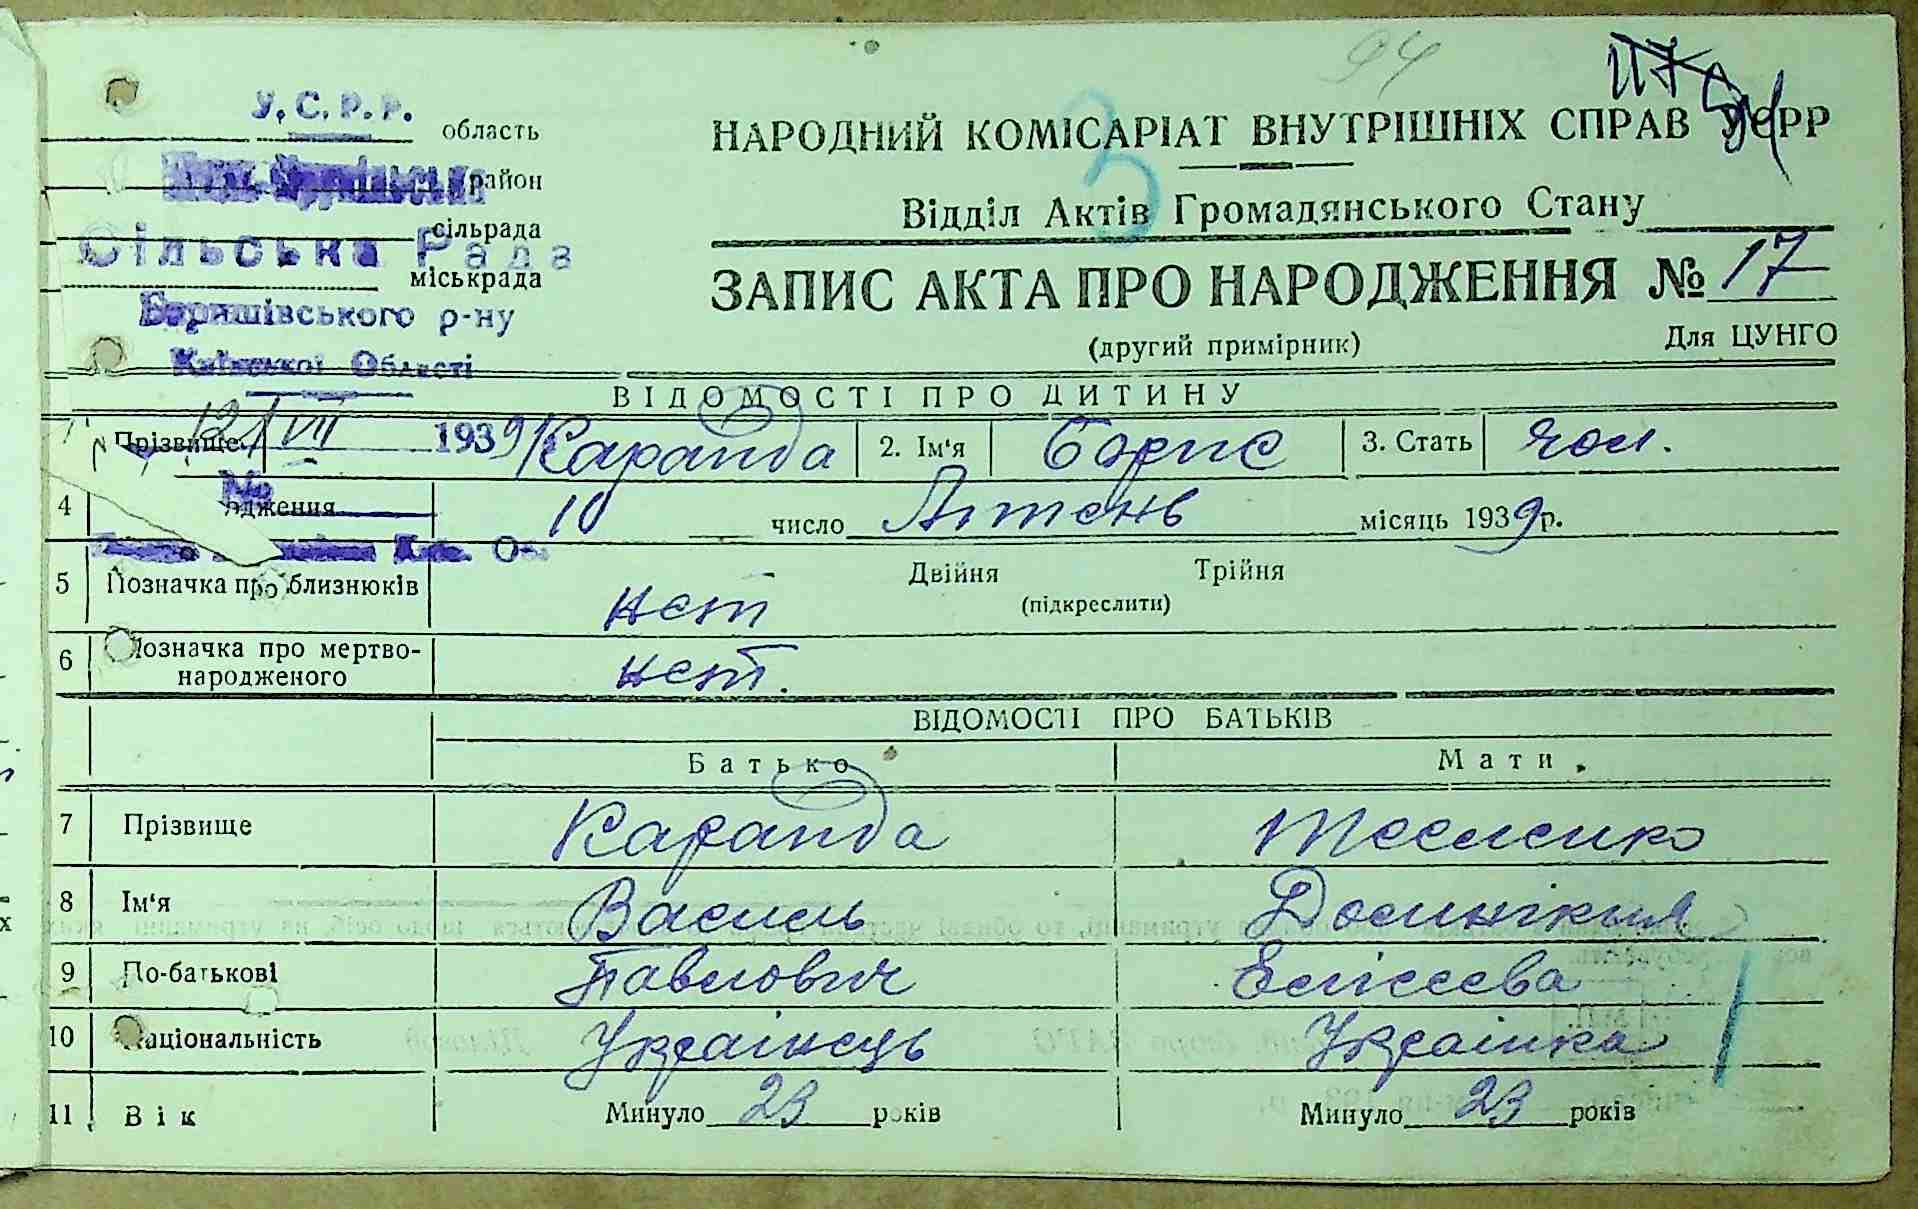 94
117
У.С.Р.Р.
область
район
Сільська Рада
сільрада
міськрада
Барашівського р-ну
Київської Області
12/VII 1939
№
НАРОДНИЙ КОМІСАРІАТ ВНУТРІШНІХ СПРАВ УСРР
3
Відділ Актів Громадянського Стану
ЗАПИС АКТА ПРО НАРОДЖЕННЯ № 17
(другий примірник) Для ЦУНГО
ВІДОМОСТІ ПРО ДИТИНУ
Прізвище Каранда 2. Ім'я Борис 3. Стать чол.
4 одження 10 число Липень місяць 1939 р.
5 Позначка про близнюків нет Двійня Трійня
(підкреслити)
6 Позначка про мертво-
народженого нет.
ВІДОМОСТІ ПРО БАТЬКІВ
Батько Мати
7 Прізвище Каранда Тесленко
8 Ім'я Василь
9 По-батькові Павлович Елісеєва
10 Національність Українець Українка
11 Вік Минуло 23 років Минуло 23 років